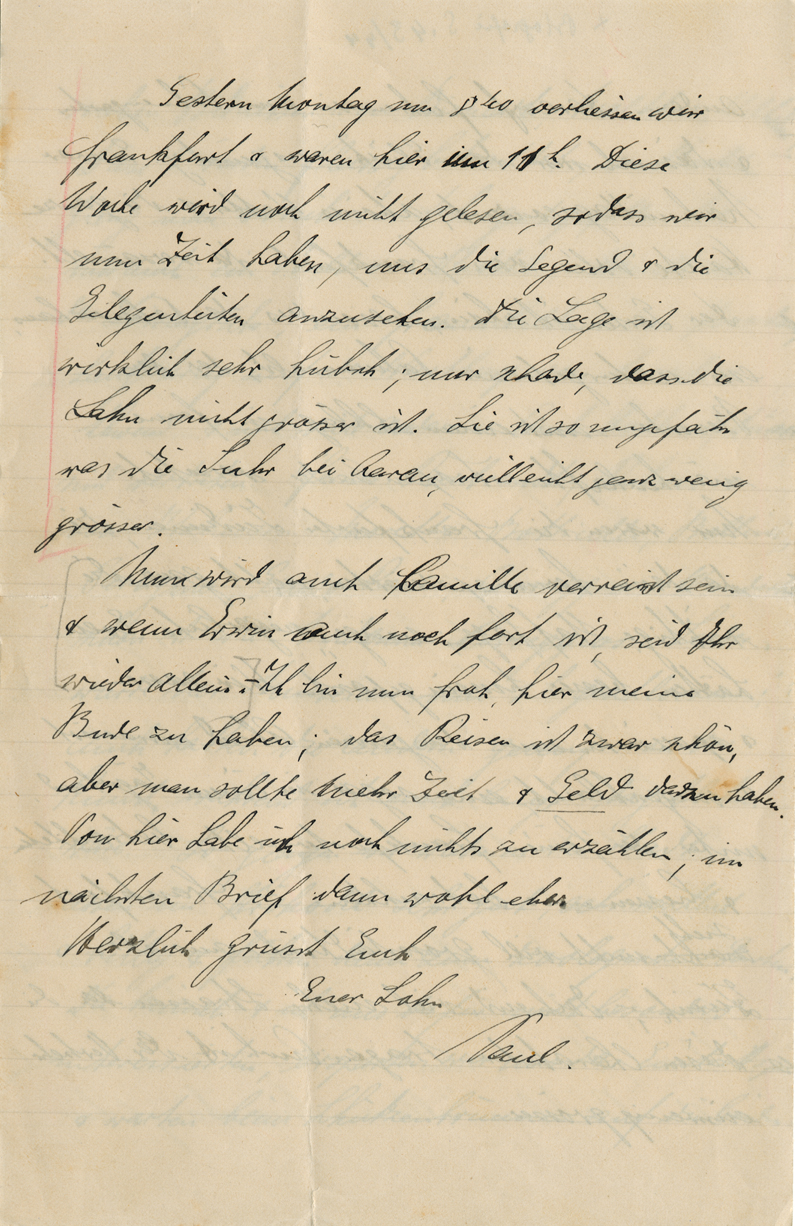 Gestern Montag um 8 40 verliessen wir
Frankfurt & waren hier um 11 h. Diese
Woche wird noch nicht gelesen, sodass wir
nun Zeit haben, uns die Gegend & die
Gelegenheiten anzusehen. Die Lage ist
wirklich sehr hübsch; nur schade, dass die
Lahn nicht grösser ist. Sie ist so ungefähr
was die Suhr bei Aarau, vielleicht ganz wenig
grösser.
Nun wird auch Camille verreist sein
& wenn Erwin auch noch fort ist, seid Ihr
wieder allein. – Ich bin nun froh, hier meine
Bude zu haben; das Reisen ist zwar schön,
aber man sollte mehr Zeit & Geld dazu haben.
Von hier habe ich noch nichts zu erzählen; im
nächsten Brief dann wohl eher.
Herzlich grüsst Euch
Euer Sohn
Paul.